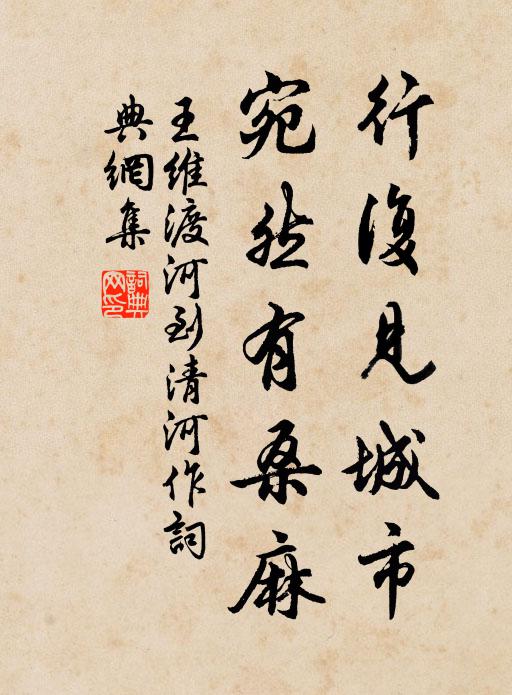 行復見城市
宛然有桑麻
王維渡河到清河作詞
典網集
詞典
网印